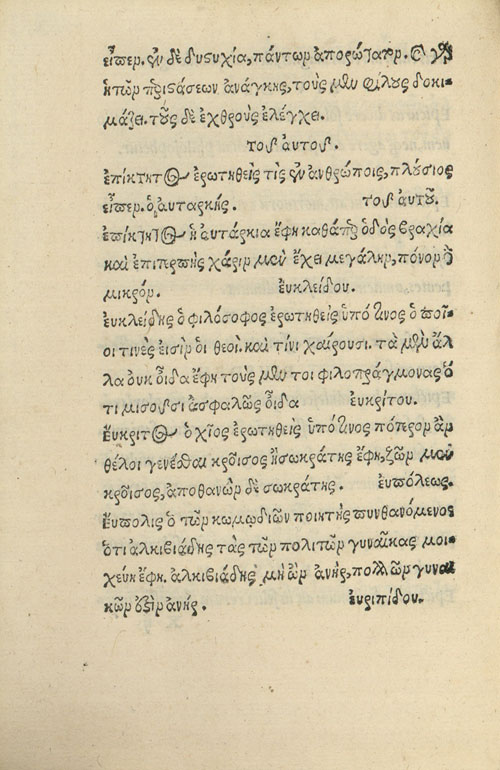 εἶπεν. ἐν δὲ δυστυχία, πάντων ἀπορώτατον. καὶ γὰρ
ἡ τῶν περιστάσεων ἀνάγκης, τοὺς μὲν φίλους δοκι-
μάζει. τοὺς δὲ ἐχθροὺς ἐλέγχει.
τοῦ ἀυτοῦ.
ἐπίκτητος ἐρωτηθεὶς τίς ἐν ἀνθρώποις, πλούσιος
εἶπεν. ὁ ἀυταρκής. τοῦ ἀυτοῦ.
ἐπίκτητος ἡ ἀυτάρκια ἔφη καθάπερ ὁδὸς βραχία
καὶ ἐπιτερπὴς χάριν μὲν ἔχει μεγάλην, πόνον δὲ
μικρόν. ἐυκλείδου.
ἐυκλείδης ὁ φιλόσοφος ἐρωτηθεὶς ὑπό τινος ὁ ποῖ-
οι τινὲς εἰσὶν ὁι θεοὶ. καὶ τίνι χαίρουσι. τὰ μὲν ἄλ
λα ουκ οἶδα ἔφη τοὺς μέν τοι φιλοπράγμονας ὅ
τι μισοῦσι ἀσφαλῶς οἶδα ἐυκρίτου.
Ἔυκριτος ὁ χῖος ἐρωτηθεὶς ὑπό τινος πότερον ἂν
θέλοι γενέσθαι κροῖσος ἢ σωκράτης ἔφη, ζῶν μὲν
κροῖσος, ἀποθανὼν δὲ σωκράτης. ἐυπόλεως.
Ἔυπολις ὁ τῶν κωμῳδιῶν ποιητὴς πυνθανόμενος
ὅτι ἀλκιβιάδης τὰς τῶν πολιτῶν γυναῖκας μοι-
χεύη ἔφη. ἀλκιβιάδης μὴ ὢν ἀνὴρ, πολλῶν γυναι
κῶν ἐστὶν ἀνήρ. ἐυριπίδου.